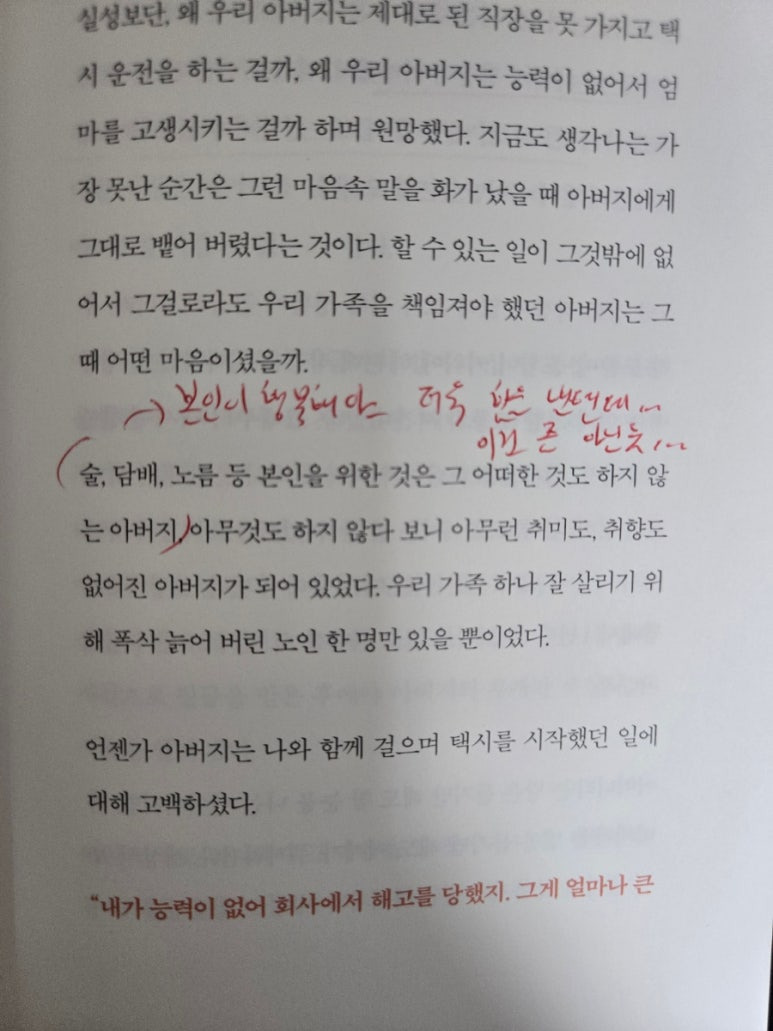 실성보단, 왜 우리 아버지는 제대로 된 직장을 못 가지고 택
시 운전을 하는 걸까, 왜 우리 아버지는 능력이 없어서 엄
마를 고생시키는 걸까 하며 원망했다. 지금도 생각나는 가
장 못난 순간은 그런 마음속 말을 화가 났을 때 아버지에게
그대로 뱉어 버렸다는 것이다. 할 수 있는 일이 그것밖에 없
어서 그걸로라도 우리 가족을 책임져야 했던 아버지는 그
때 어떤 마음이셨을까.
→ 본인이 더욱
이건 좀 아닌듯...
술, 담배, 노름 등 본인을 위한 것은 그 어떠한 것도 하지 않
는 아버지. 아무것도 하지 않다 보니 아무런 취미도, 취향도
없어진 아버지가 되어 있었다. 우리 가족 하나 잘 살리기 위
해 폭삭 늙어 버린 노인 한 명만 있을 뿐이었다.
언젠가 아버지는 나와 함께 걸으며 택시를 시작했던 일에
대해 고백하셨다.
“내가 능력이 없어 회사에서 해고를 당했지. 그게 얼마나 큰